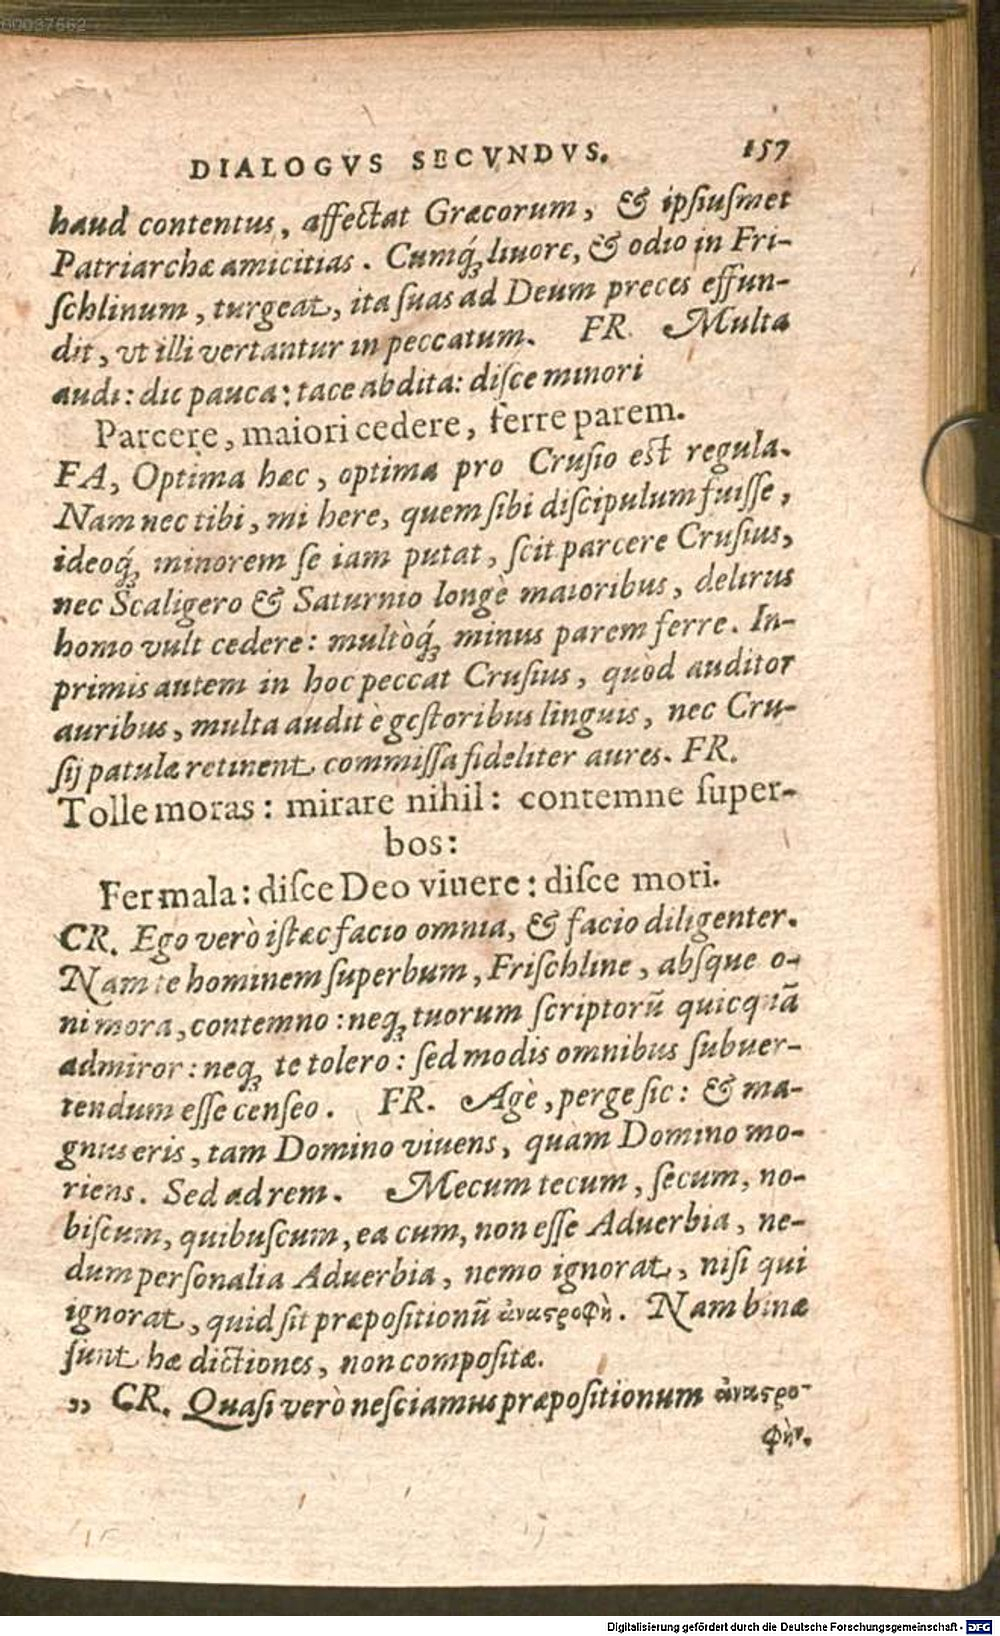 00037662
DIALOGVS SECVNDVS. 157
haud contentus, affectat Græcorum, & ipſiuſmet
Patriarchæ amicitias. Cumq́ꝫ liuore, & odio in Fri-
ſchlinum, turgeat, ita ſuas ad Deum preces effun-
dit, vt illi vertantur in peccatum. FR. Multa
audi: dic pauca: tace abdita: diſce minori
Parcere, maiori cedere, ferre parem.
FA, Optima hæc, optima pro Cruſio eſt regula.
Nam nec tibi, mi here, quem ſibi diſcipulum fuiſſe,
ideoq́ꝫ minorem ſe iam putat, ſcit parcere Cruſius,
nec Scaligero & Saturnio longè maioribus, delirus
homo vult cedere: multòq́ꝫ minus parem ferre. In-
primis autem in hoc peccat Cruſius, quòd auditor
auribus, multa audit è geſtoribus linguis, nec Cru-
ſij patulæ retinent commiſſa fideliter aures. FR.
Tolle moras: mirare nihil: contemne ſuper-
bos:
Fer mala: diſce Deo viuere: diſce mori.
CR. Ego verò iſtæc facio omnia, & facio diligenter.
Nam te hominem ſuperbum, Friſchline, abſque o-
ni mora, contemno: neqꝫ tuorum ſcriptorũ quicquã
admiror: neqꝫ te tolero: ſed modis omnibus ſubuer-
tendum eſſe cenſeo. FR. Agè, perge ſic: & ma-
gnus eris, tam Domino viuens, quàm Domino mo-
riens. Sed ad rem. Mecum tecum, ſecum, no-
biſcum, quibuſcum, ea cum, non eſſe Aduerbia, ne-
dum perſonalia Aduerbia, nemo ignorat, niſi qui
ignorat, quid ſit præpoſitionũ ἀναςροφὴ. Nam binæ
ſunt hæ dictiones, non compoſitæ.
„ CR. Quaſi verò neſciamus præpoſitionum ἀναςρο-
φὴν.
Digitalisierung gefördert durch die Deutsche Forschungsgemeinschaft - DFG